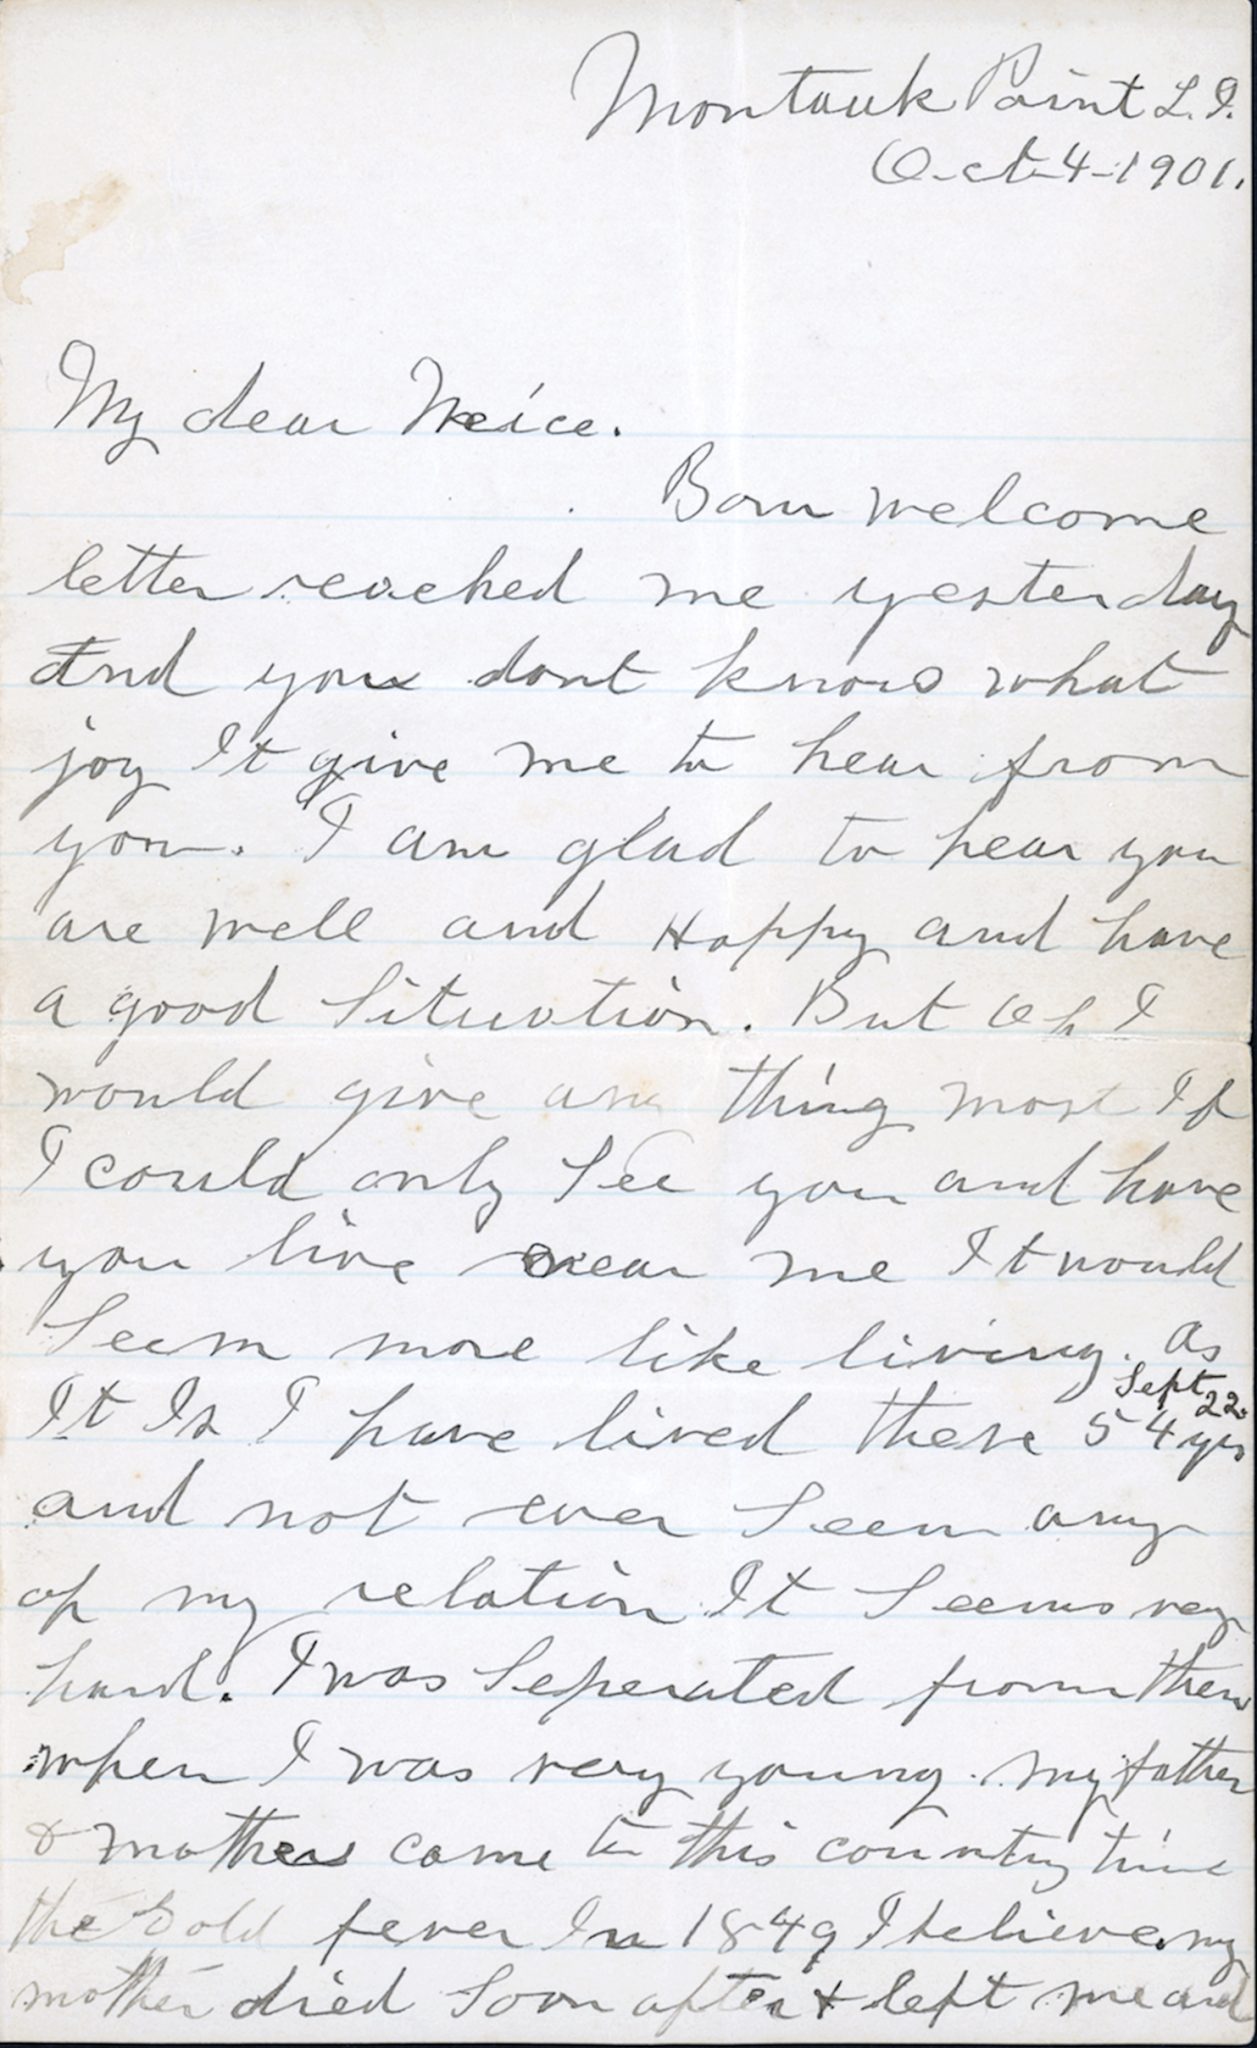 Montauk Point L.I.
Oct-4-1901.
My dear Neice.
Your welcome
letter reached me yesterday
And you dont know what
joy It give me to hear from
you. I am glad to hear you
are well and Happy and have
a good Situation. But Oh I
would give any thing most If
I could only See you and have
you live near me It would
Seem more like living. as
Sept 22.
It Is I have lived these 54 yrs
and not ever Seen any
of my relation It Seems very
hard. I was Seperated from them
when I was very young. my father
& mother came to this country time
the Gold fever In 1849 I believe. my
mother died Soon after & left me and